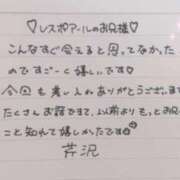 ♡レスポアールのお兄様♡
こんなすぐ会えると思ってなかった
のですごーく嬉しいです
今回も差し入れありがとうございます
たくさんお話できて、以前よりもっとお兄
こと知れて嬉しかったです
芹沢